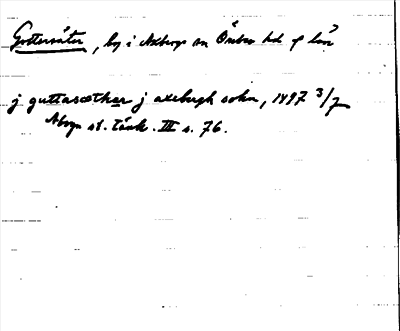 Guttersäter, by i Axbergs sn Örebro hd o län
j guttasæthar j axebergh sokn, 1497 3/7
st. tänk. III s. 76.